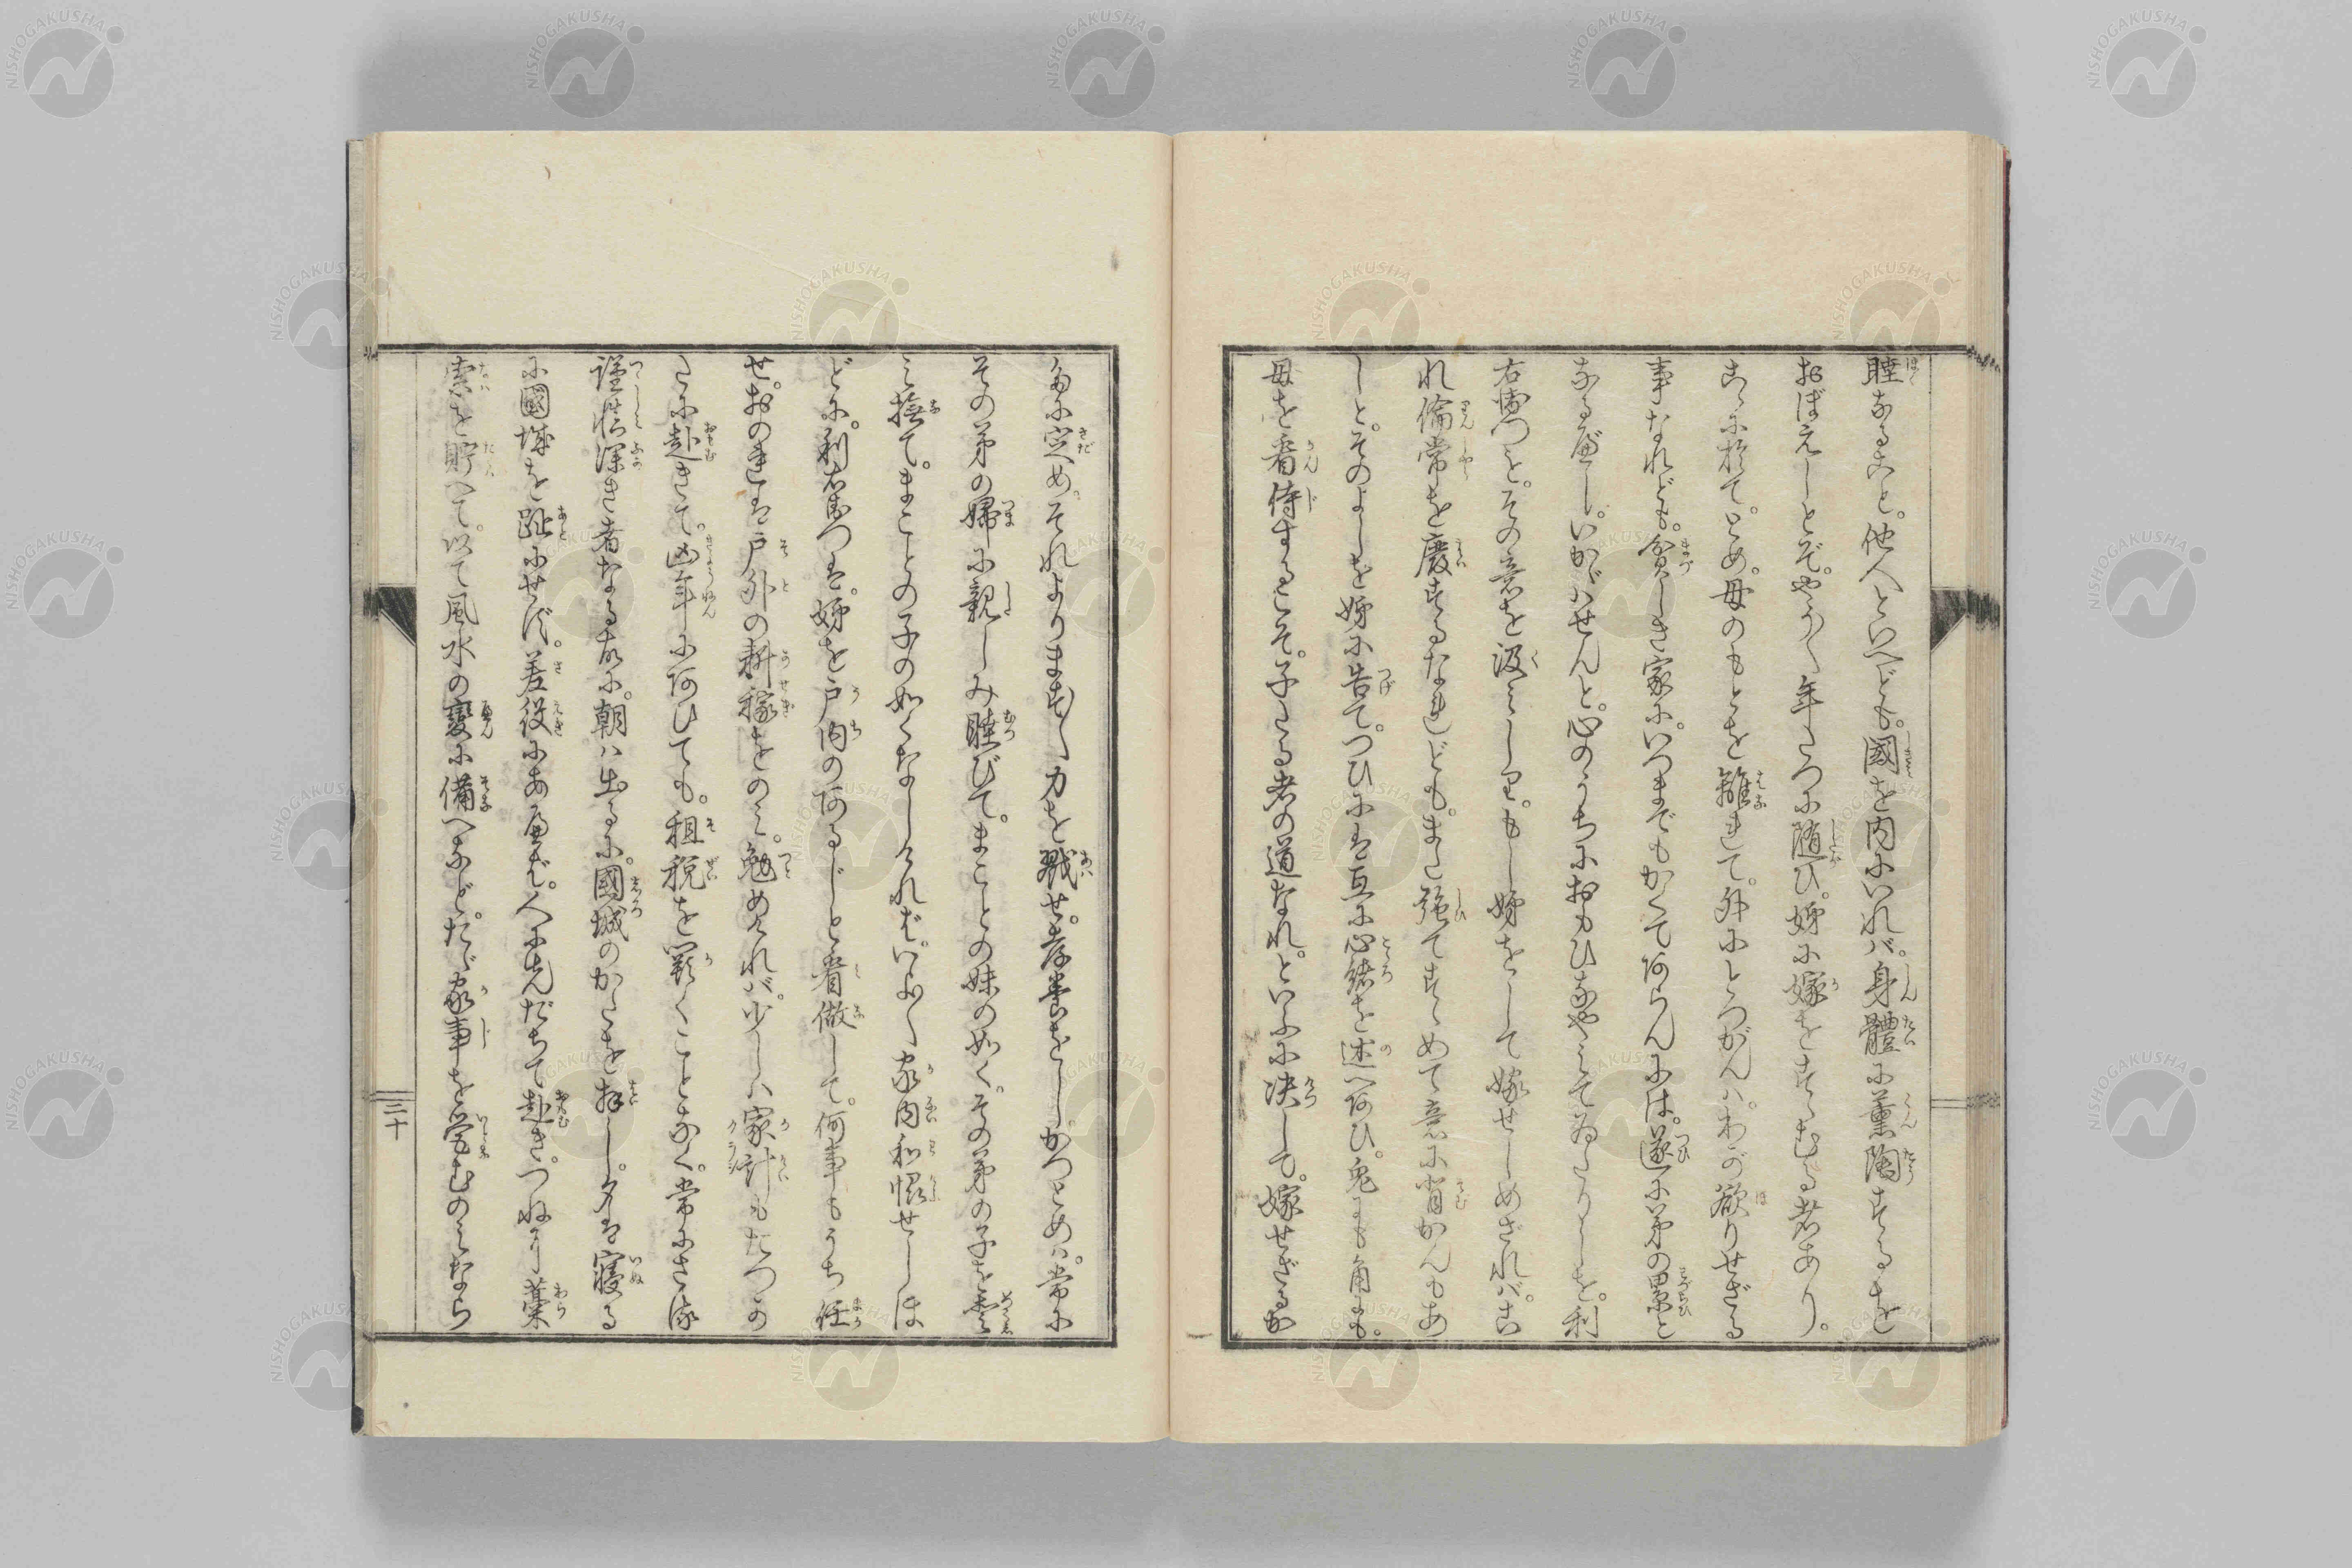 睦なること。他人といへども。國を内にいれバ。身體に薫陶するを
おぼえしとぞ。やうやく年たつに随ひ。姊に嫁をすゝむる者あり。
こゝに於て。とめ。母のもとを離れて。外にとつがんハ。わが欲りせざる
事なれども。貧しき家に。いつまでもかくてあらんには。遂に弟の累と
なるべし。いかゞハせんと。心のうちにおもひなやみてゐたりしを。利
右衞つと。その意を汲みしり。もし姊をして嫁せしめざれバ。こ
れ倫常を廢するなれども。また強てすゝめて意に背かんもあ
しと。そのよしを姊に告て。つひには互に心緒を述べあひ。兎にも角にも。
母を看侍するこそ。子たる者の道なれ。といふに决して。嫁せざるか
たに定め。それよります〳〵力を戮せ。孝養をし。かつとめハ。常に
その弟の婦に親しみ睦びて。まことの妹の如く。その弟の子を
み撫て。まことの子の如くなしければ。いよ〳〵家内和愜せしほ
どに。利右衛つは。姊を戸内のあるじと看做して。何事もうち任
せ。おのれは戸外の耕稼をのみ。勉めければ。少しハ家計もたつか
たに赴きて。凶年にあひても。租税を欠くことなく。常にさ
謹愼深き者なる故に。朝ハ出るに。國城のかたを拜し。夕は寝る
に國城を趾にせず。差役にあへば。人に先だちて赴き。つねに藁
索を貯へて。以て風水の變に備へなど。たゞ家事を営むのみなら
三十